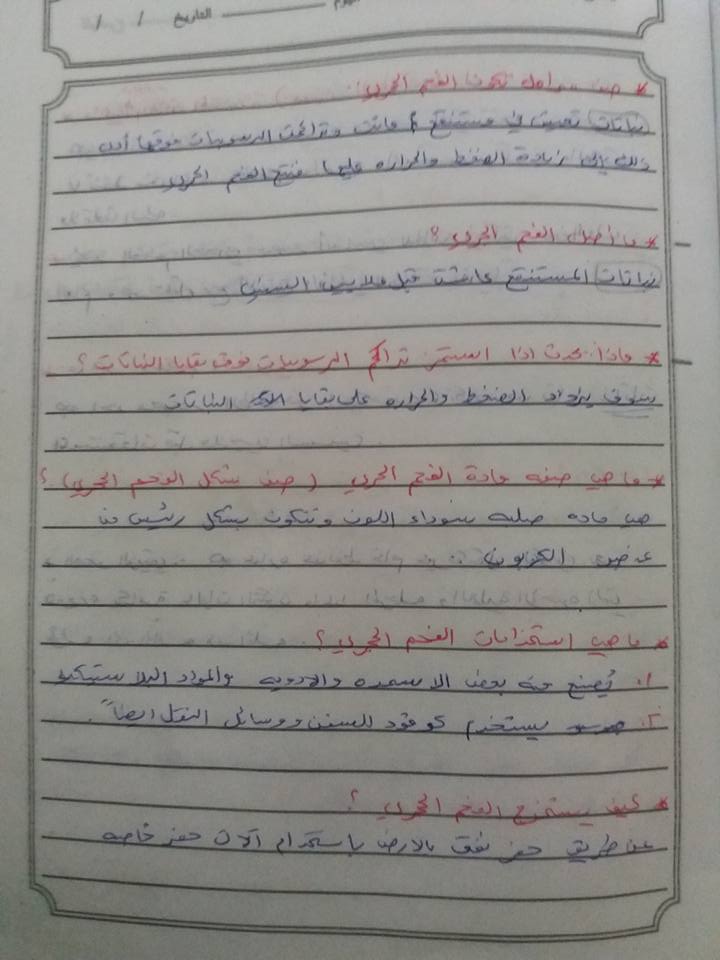 اليوم ــــــــ التاريخ / /
* صف مراحل تكون الفحم الحجري:
نباتات تعيش في مستنقع ماتت وتراكمت الرسوبيات فوقها أدى
ذلك إلى زيادة الضغط والحراره عليها فنتج الفحم الحجري
* ما أصل الفحم الحجري؟
نباتات المستنقع عاشت قبل ملايين السنين
* ماذا يحدث اذا استمر تراكم الرسوبيات فوق بقايا النباتات؟
سوف يزداد الضغط والحراره على بقايا النباتات
* ما هي صفه مادة الفحم الحجري (صف شكل الفحم الحجري)؟
هي ماده صلبه سوداء اللون وتتكون بشكل رئيس من
عنصر الكربون
* ما هي استخدامات الفحم الحجري؟
١. يُصنع منه بعض الاسمده والادويه والمواد البلاستيكيه
٢. يستخدم كوقود للسفن ووسائل النقل ايضاً.
* كيف يستخرج الفحم الحجري؟
عن طريق حفر نفق بالارض باستخدام آلات حفر خاصه